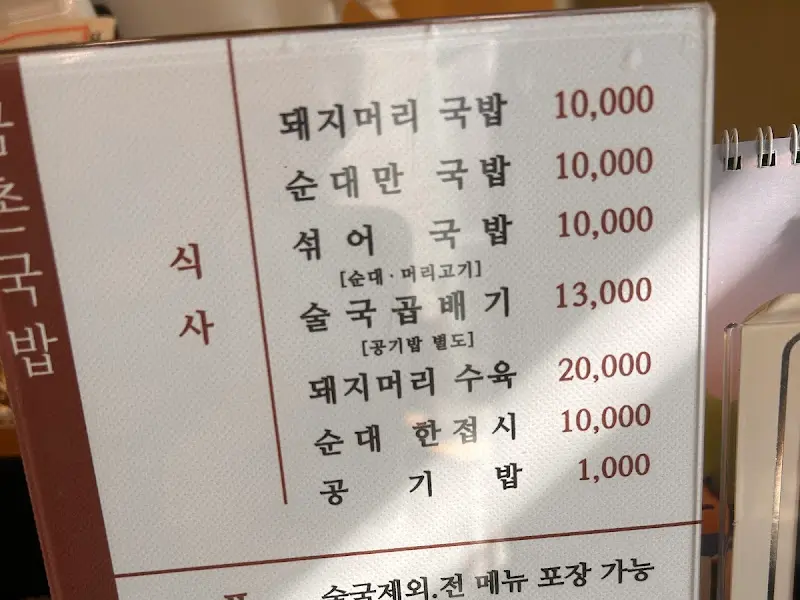 식사
돼지머리 국밥 10,000
순대만 국밥 10,000
섞어 국밥 10,000
[순대·머리고기]
술국곱배기 13,000
[공기밥 별도]
돼지머리 수육 20,000
순대 한접시 10,000
공기밥 1,000
술국제외.전 메뉴 포장 가능
국밥